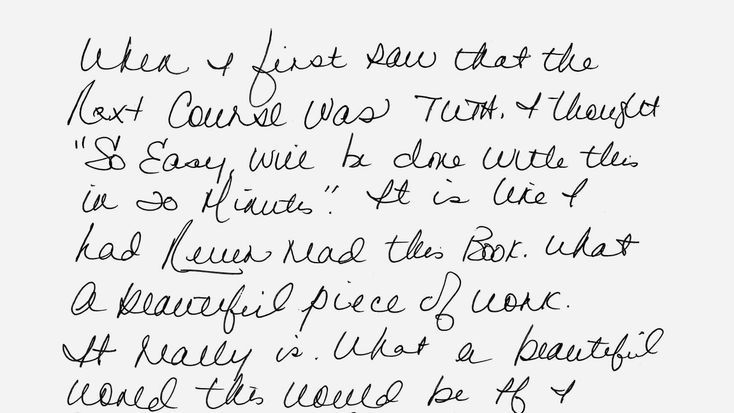 When I first saw that the
Next Course was TWTH. I thought
"So Easy, will be done with this
in 20 Minutes". It is like I
had Never read this Book. What
a beautiful piece of work.
It Really is. What a beautiful
World this would be If I